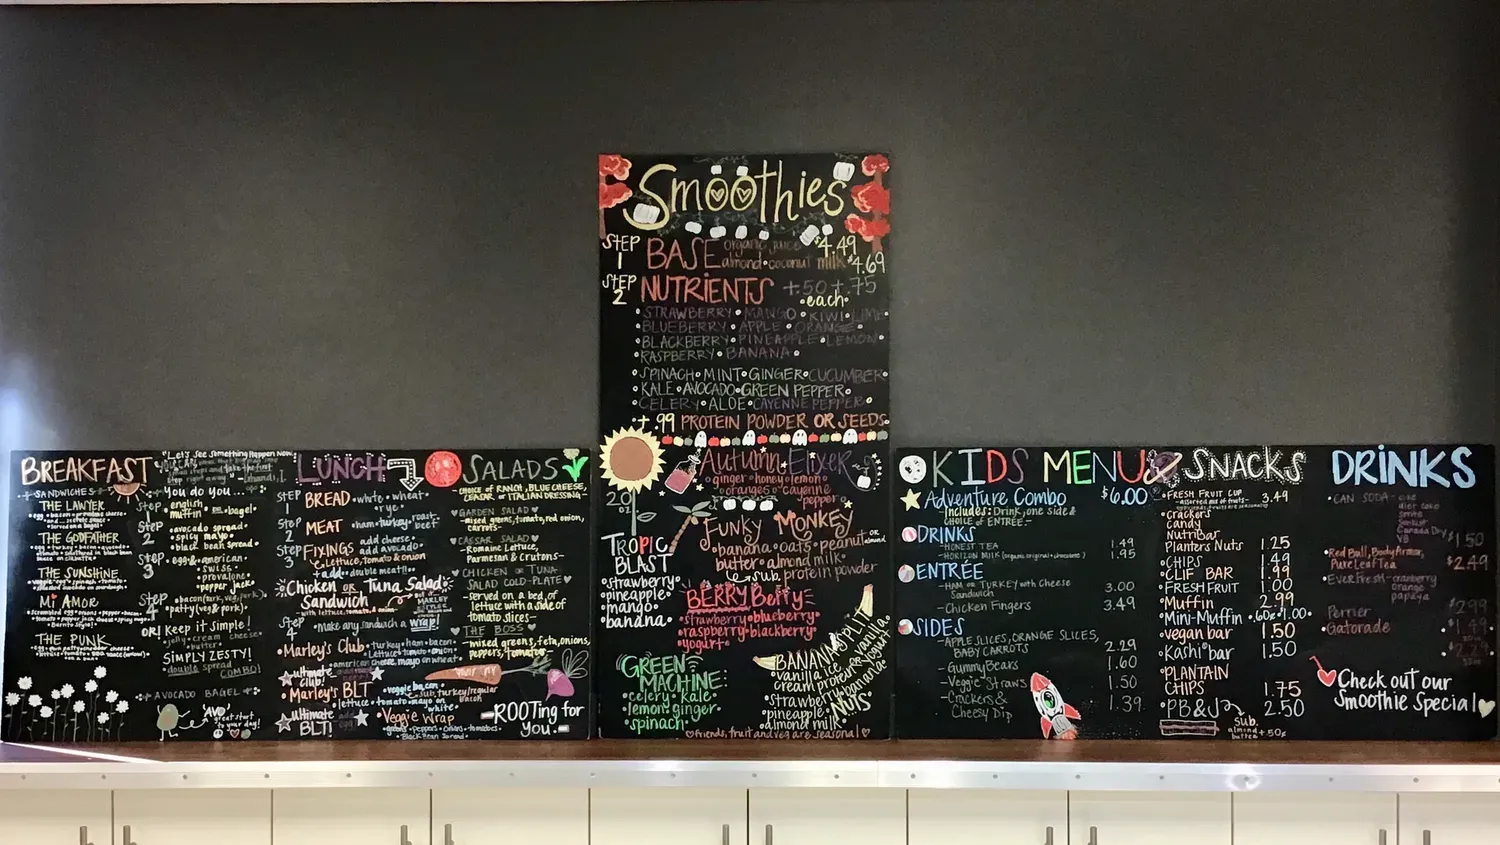 Smoothies
STEP 1 BASE organic juice $4.49
almond • coconut milk $4.69
STEP 2 NUTRIENTS +.50 +.75
• each •
• STRAWBERRY • MANGO • KIWI • LIME •
• BLUEBERRY • APPLE • ORANGE •
• BLACKBERRY • PINEAPPLE • LEMON •
• RASPBERRY • BANANA •
SPINACH • MINT • GINGER • CUCUMBER •
• KALE • AVOCADO • GREEN PEPPER •
• CELERY • ALOE • CAYENNE PEPPER •
+.99 PROTEIN POWDER OR SEEDS
Autumn Elixer
ginger • honey • lemon
• oranges • cayenne
pepper •
20 oz
FUNKY MONKEY
• banana • oats • peanut or almond
butter • almond milk
sub. protein powder
TROPIC BLAST
• strawberry
• pineapple
• mango •
banana •
BERRY Berry
• strawberry • blueberry
• raspberry • blackberry
yogurt •
GREEN MACHINE:
• celery • kale •
lemon • ginger
spinach •
BANANA SPLIT
vanilla ice
cream
strawberry
pineapple
almond milk
NUTS
♡ friends, fruit and veg are seasonal ♡
BREAKFAST
"Let's See Something Happen Now.
• SANDWICHES •
THE LAWYER
THE GODFATHER
THE SUNSHINE
Mi AMOR
THE PUNK
you do you...
Step 1 english muffin or • bagel •
Step 2 • avocado spread •
• spicy mayo •
• black bean spread •
Step 3 egg & american •
• swiss •
• provalone •
• pepper jack •
Step 4 • bacon (pork, veg, pork) •
• patty (veg & pork) •
OR! keep it simple!
• jelly • cream cheese •
butter •
SIMPLY ZESTY!
double spread
COMBO!
• AVOCADO BAGEL •
AVO
great start
to your day!
LUNCH
STEP 1 BREAD • white • wheat •
• rye •
STEP 2 MEAT • ham • turkey • roast beef •
Step 3 FIXINGS add cheese •
add avocado •
• lettuce, tomato & onion
+ add • double meat!!
Chicken OR Tuna Salad
Sandwich
Step 4 Make any sandwich a wrap!
Marley's Club • turkey • ham • bacon •
lettuce • tomato • onion •
american cheese, mayo on wheat •
ultimate club!
Marley's BLT
• lettuce • tomato • mayo on
white •
ultimate BLT!
Veggie Wrap
SALADS
- CHOICE OF RANCH, BLUE CHEESE,
CAESAR, OR ITALIAN DRESSING -
♥ GARDEN SALAD ♥
- mixed greens, tomato, red onion,
carrots -
♥ CAESAR SALAD ♥
- Romaine Lettuce,
Parmesan & Crutons -
♥ CHICKEN OR TUNA-
SALAD COLD-PLATE ♥
- served on a bed of
lettuce with a side of
tomato slices -
♥ THE BOSS ♥
- mixed greens, feta, onions,
peppers, tomatoes
-ROOTing for
you.-
KIDS MENU
Adventure Combo $6.00
Includes: Drink, one side &
choice of entrée. -
DRINKS
- HONEST TEA 1.49
- HORIZON MILK (organic original • chocolate) 1.95
ENTRÉE
- HAM or TURKEY with Cheese
Sandwich 3.00
- Chicken Fingers 3.49
SIDES
- APPLE SLICES, ORANGE SLICES,
BABY CARROTS 2.29
- Gummy Bears 1.60
- Veggie Straws 1.50
- Crackers &
Cheesy Dip 1.39
SNACKS
• FRESH FRUIT CUP 3.49
• Crackers
candy
NutriBar
Planters Nuts 1.25
• CHIPS 1.49
• CLIF BAR 1.99
• FRESH FRUIT 1.00
• Muffin 2.99
• Mini-Muffin .60¢ • 1.00 •
• vegan bar 1.50
• Kashi bar 1.50
• PLANTAIN
CHIPS 1.75
• PB & J 2.50
Sub. almond butter + 50¢
DRINKS
• CAN SODA - coke
diet coke
sprite
Canada Dry
V8 $1.50
• Red Bull, Body Armor,
Pure Leaf Tea $2.49
• EverFresh - cranberry
orange
papaya $2.99
Perrier $1.49
• Gatorade $2.29
Check out our
Smoothie Special!